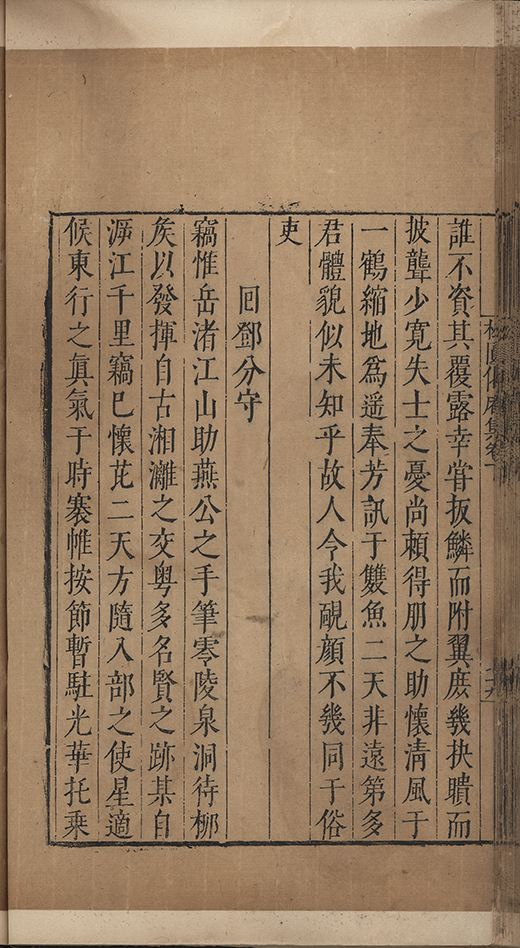 誰不資其覆露幸甞扳鱗而附翼庶幾抉聵而
披聾少寛失士之憂尚賴得朋之助懷清風于
一鶴縮地爲遥奉芳訊于雙魚二天非遠第多
君體貌似未知乎故人令我靦顔不幾同于俗
吏
囘鄧分守
竊惟岳渚江山助燕公之手筆零陵泉洞待柳
矦以發揮自古湘灕之交粤多名賢之跡某自
江千里竊已懷芘二天方隨入部之使星適
候東行之眞氣于時褰帷按節暫駐光華托乘